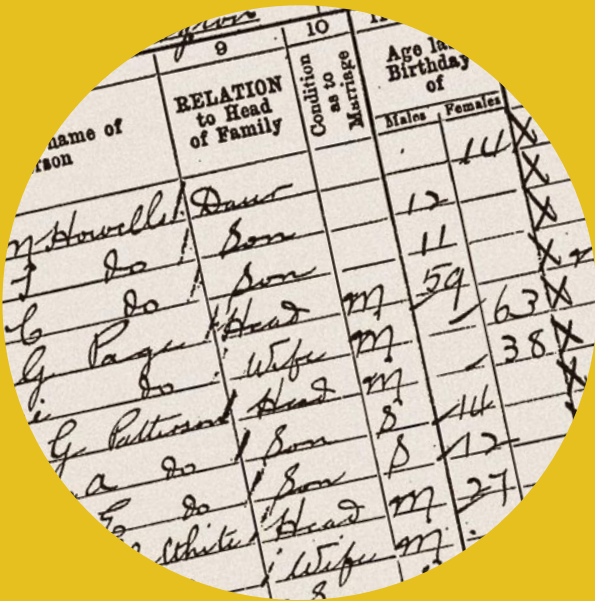 9 10
name of
rson
RELATION
to Head
of Family
Condition
as to
Marriage
Age la
Birthday
of
Males Females
Howells Daur 14 X
do Son 12 X
C do Son 11 X
G Page Head M 59 X
do Wife M 63 X
G Patterson Head M 38 X
a do Son S 14
do Son S 12
White Head M 27
Wife M
S